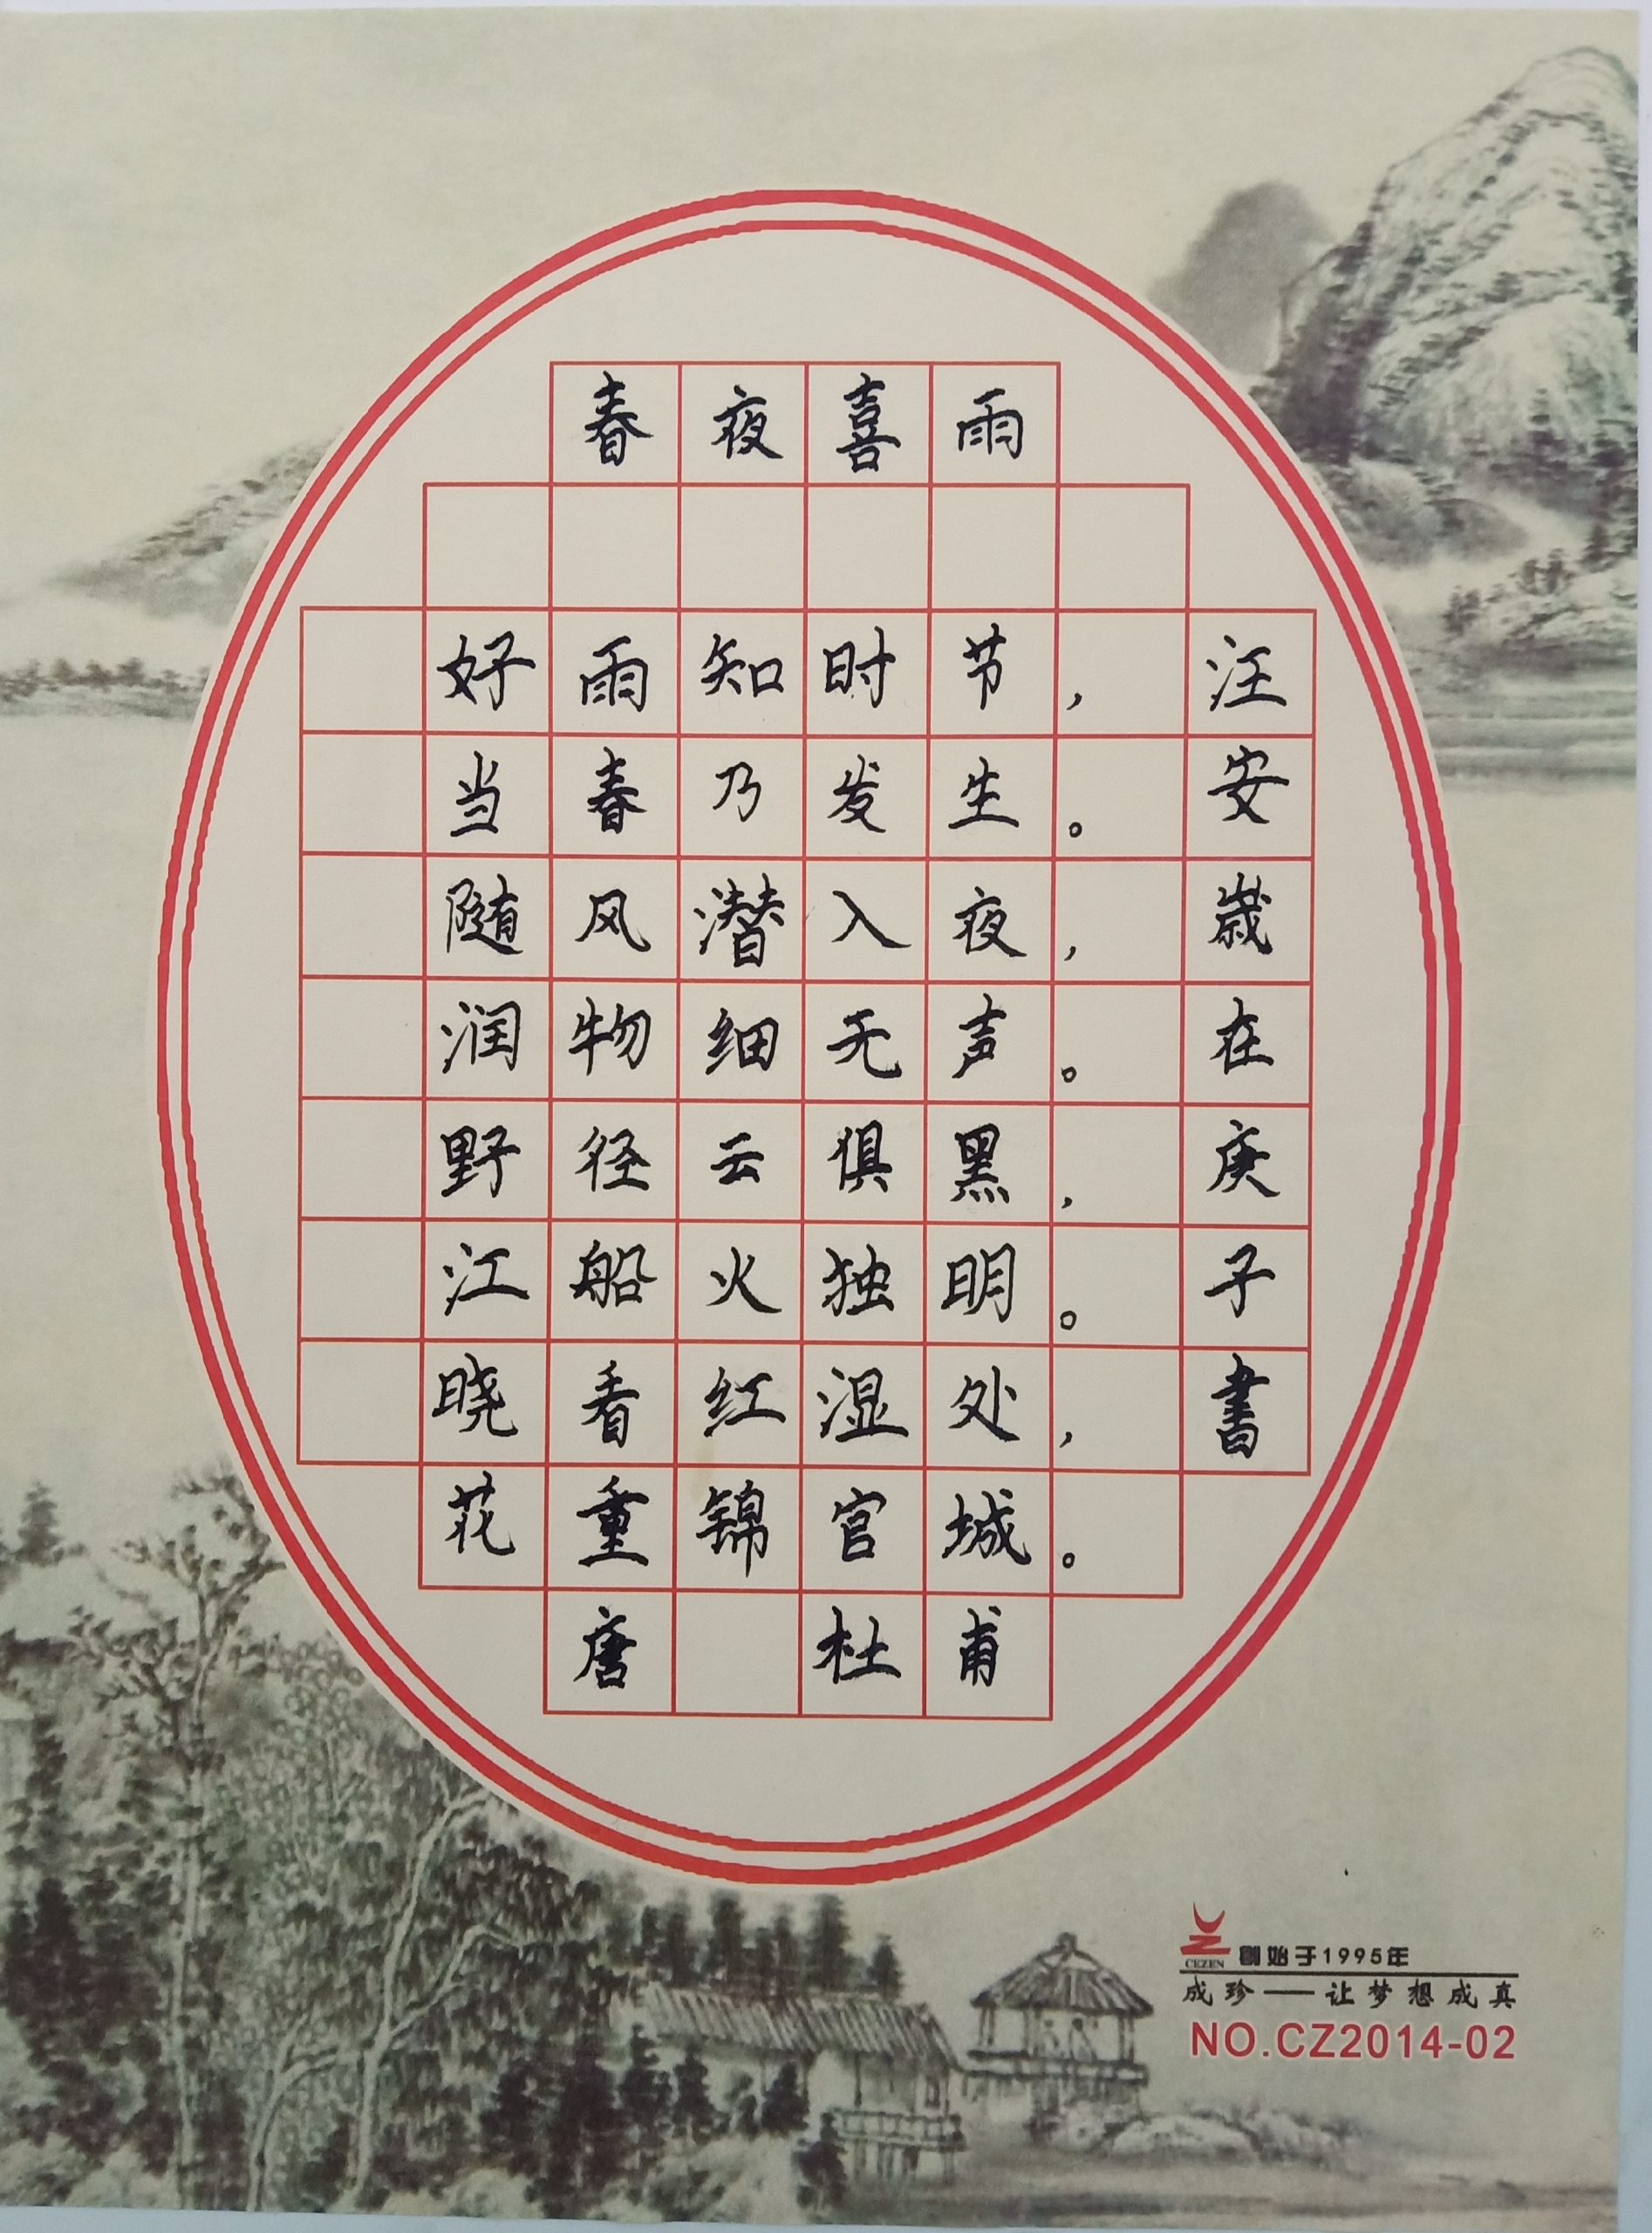 春夜喜雨
好雨知时节，
当春乃发生。
随风潜入夜，
润物细无声。
野径云俱黑，
江船火独明。
晓看红湿处，
花重锦官城。
唐 杜甫
汪安歲在庚子書
CEZEN 創始于1995年
成珍——让梦想成真
NO.CZ2014-02